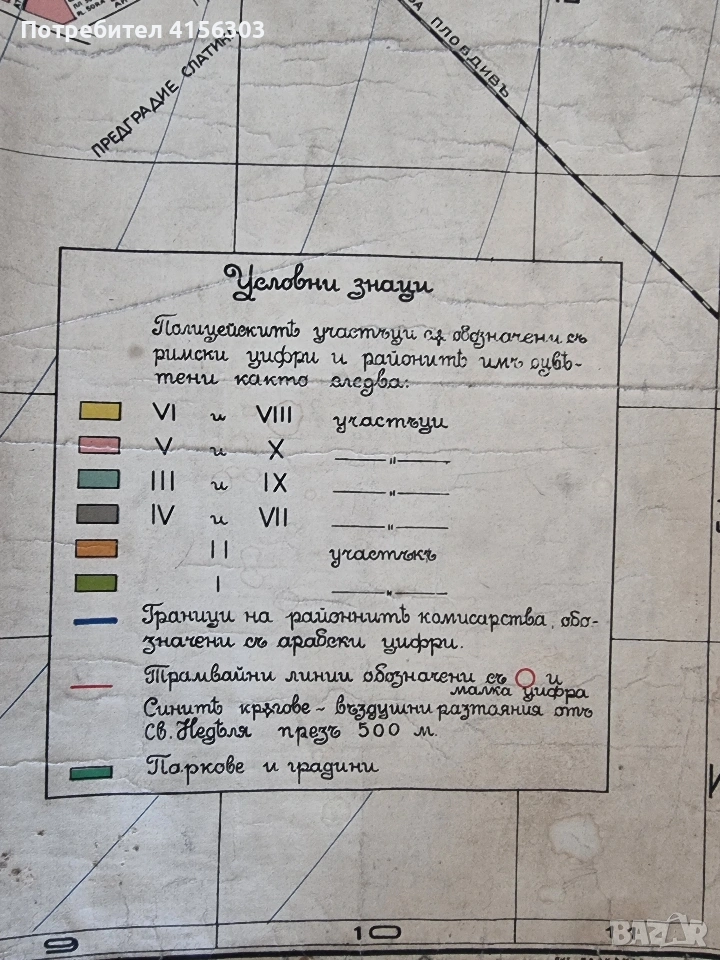 Потребител 4156303
ПРЕДГРАДИЕ СЛАТИНА
ЗА ПЛОВДИВЪ
Условни знаци
Полицейскитѣ участъци сѫ обозначени съ
римски цифри и районитѣ имъ оцвѣ-
тени както следва:
VI и VIII участъци
V и X —"—
III и IX —"—
IV и VII —"—
II участъкъ
I —"—
Граници на районнитѣ комисарства, обо-
значени съ арабски цифри.
Трамвайни линии обозначени съ O и
малка цифра
Синитѣ крѫгове ~ въздушни разтаяния отъ
Св. Недѣля презъ 500 м.
Паркове и градини
9 10 11
BAZAR